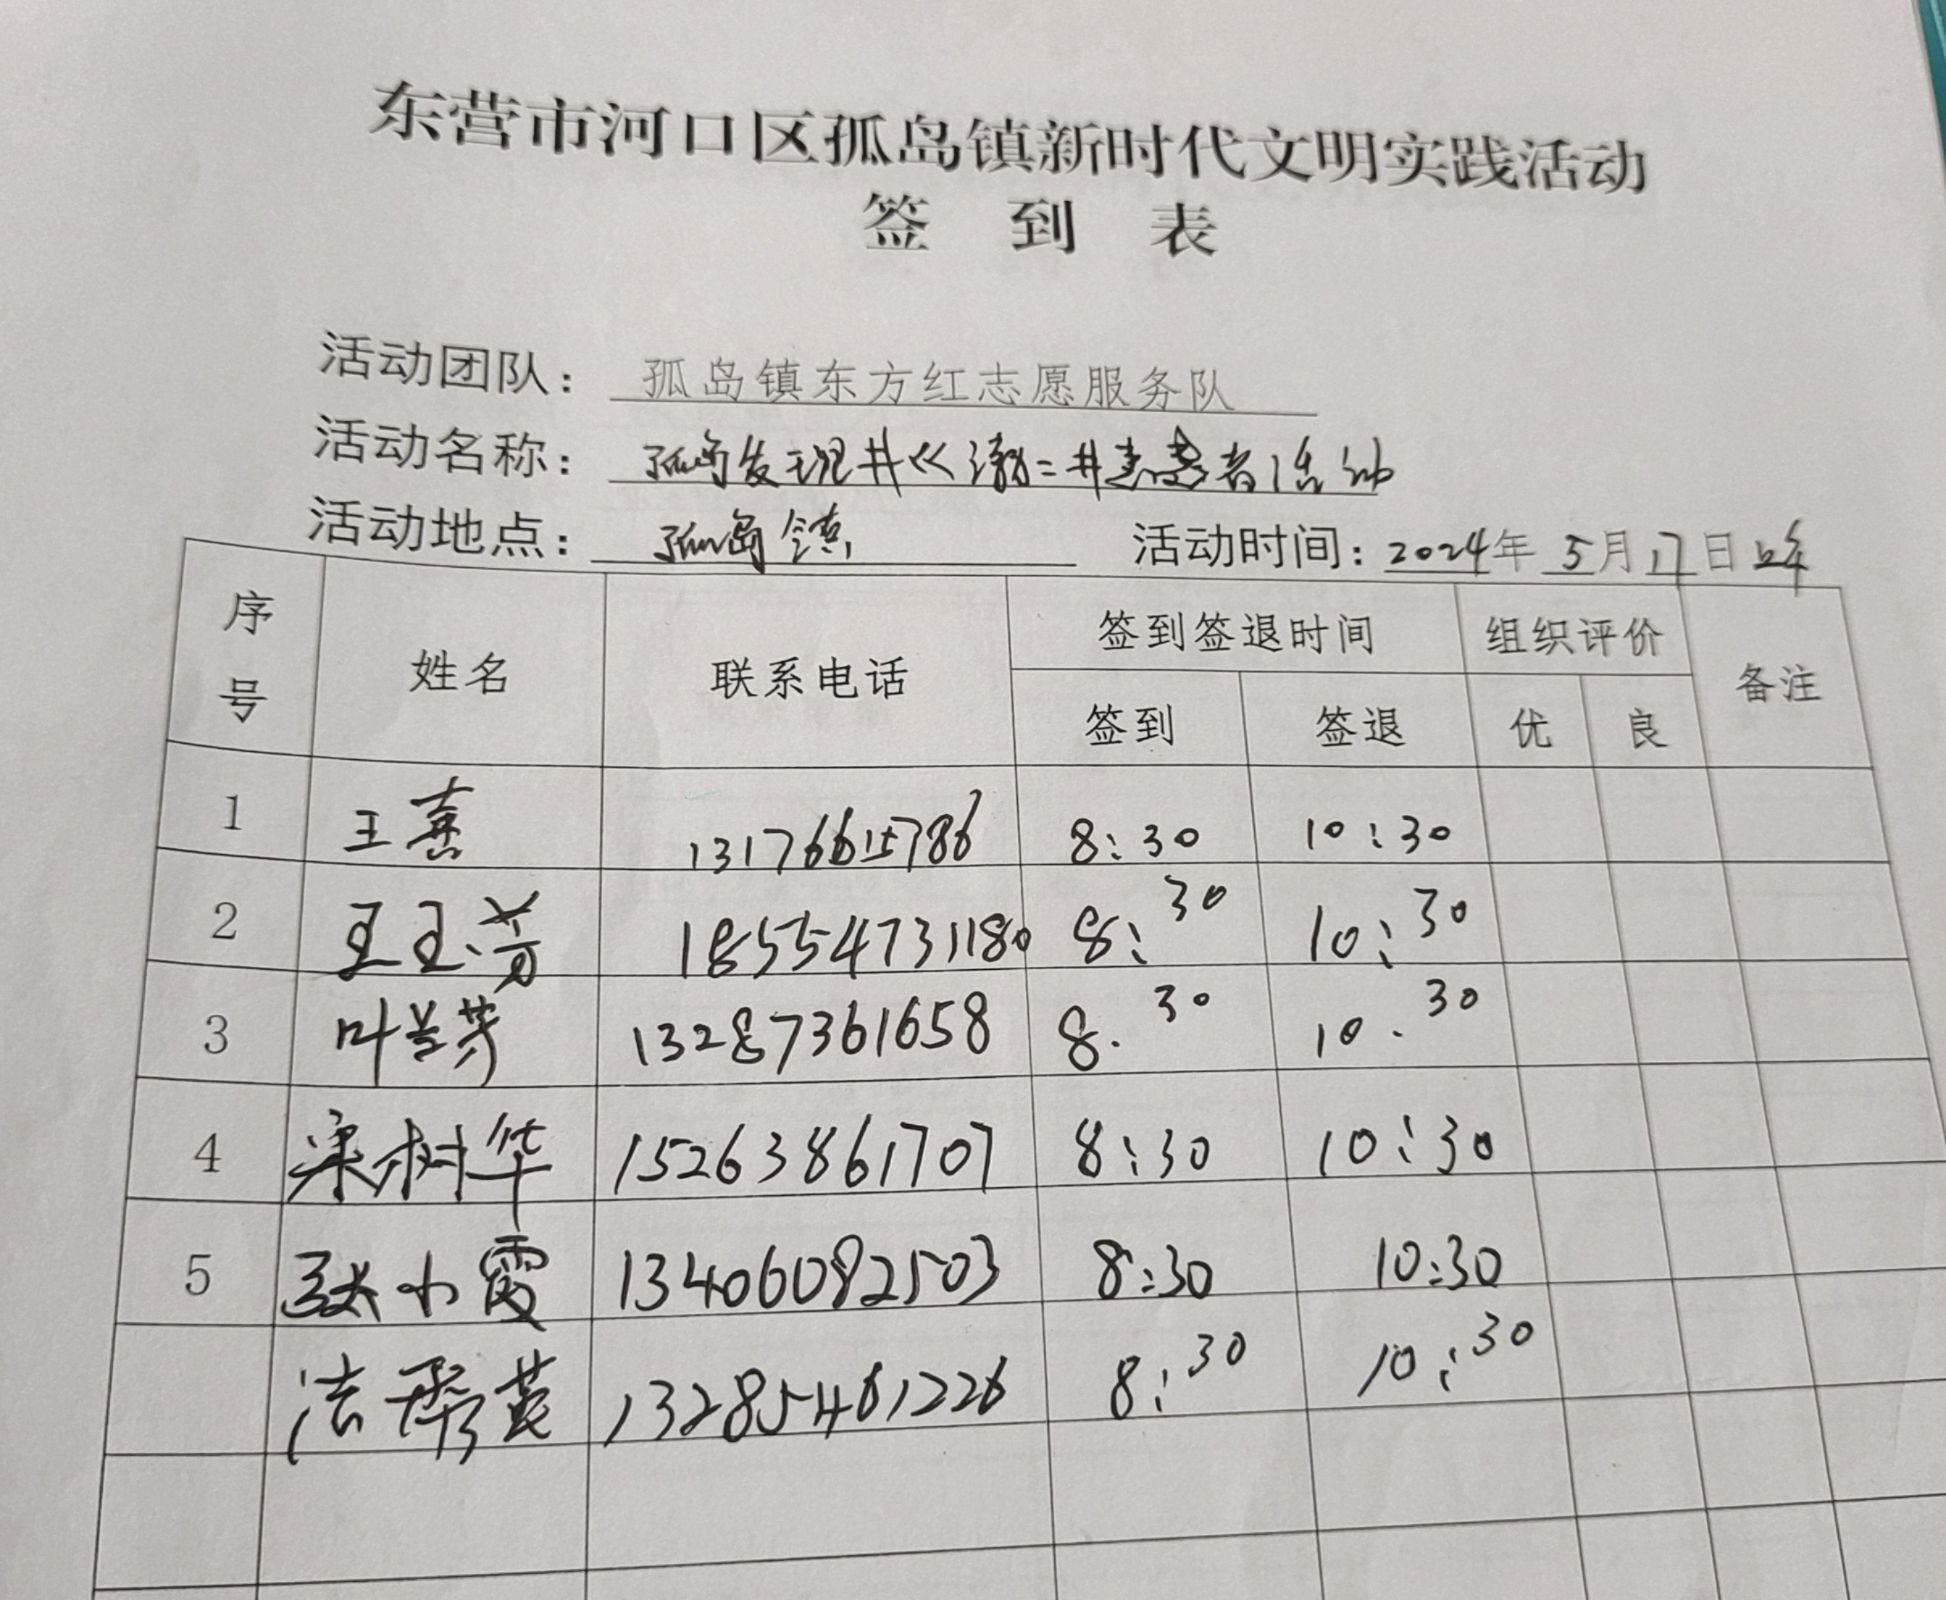 东营市河口区孤岛镇新时代文明实践活动
签 到 表
活动团队：孤岛镇东方红志愿服务队
活动名称：孤岛发现井《渤二井志愿者活动
活动地点：孤岛镇 活动时间：2024年5月17日上午
序号 姓名 联系电话 签到签退时间 组织评价 备注
签到 签退 优 良
1 王熹 13176615786 8:30 10:30
2 王玉芳 18554731180 8:30 10:30
3 叶兰芳 13287361658 8.30 10.30
4 梁树华 15263861707 8:30 10:30
5 小霞 13406082503 8:30 10:30
13285461226 8:30 10:30